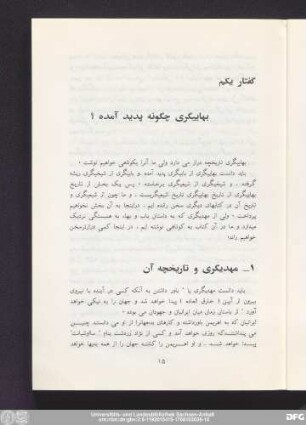 گفتار یکم
بهاییگری چگونه پدید آمده ؟
بهاییگری تاریخچه دراز می دارد ولی ما آنرا بکوتاهی خواهیم نوشت :
باید دانست بهاییگری از بابیگری پدید آمده و بابیگری از شیخیگری ریشه
گرفته ، و شیخیگری از شیعیگری برخاسته . پس یک بخش از تاریخ
بهاییگری از تاریخ بابیگری تاریخ شیخیگریست ، و ما چون از شیعیگری و
تاریخ آن در کتابهای دیگری سخن رانده ایم ، دراینجا به آن بخش نخواهیم
پرداخت . ولی از مهدیگری که به داستان باب و بهاء به همبستگی نزدیک
میدارد و ما در آن کتاب به کوتاهی نوشته ایم ، در اینجا کمی درازترسخن
خواهیم راند:
۱ــ مهدیگری و تاریخچه آن
باید دانست مهدیگری یا " باور داشتن به آنکه کسی در آینده با نیروی
بیرون از آیین ( خارق العاده ) پیدا خواهد شد و جهان را به نیکی خواهد
آورد " از باستان زمان میان ایرانیان و جهودان می بوده .
ایرانیان که به اهریمن باورداشته و کارهای بدجهانرا از او می دانستند چنیـن
می پنداشتندکه روزی خواهد آمد و کسی از نژاد زردشت بنام " سائوشیانت"
پیـدا خواهد شـد، و او اهـریمـن را کشته جهان را از همه بدیها خواهد
۱۵
Universitäts- und Landesbibliothek Sachsen-Anhalt